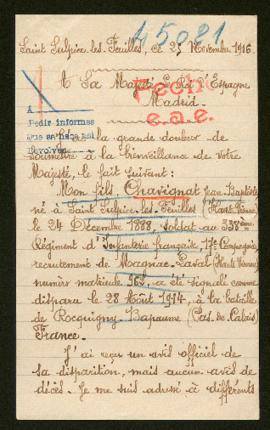 45081
Saint Sulpice les Feuilles, ce 25 Novembre 1916.
A Sa Majesté le Roi d'Espagne
Madrid.
Fecho
e.a.e.
A
Pedir informes
Que se haga así
Devolver
la grande douleur de
soumettre à la bienveillance de votre
Majesté, le fait suivant:
Mon fils Chavignat Jean Baptiste
né à Saint Sulpice les Feuilles (Haute Vienne)
le 24 Décembre 1888, soldat au 338ème
Régiment d'Infanterie française, 17e Compagnie,
recrutement de Magnac-Laval (Haute Vienne)
numéro matricule 965, a été signalé comme
disparu le 28 Août 1914, à la bataille
de Rocquigny-Bapaume (Pas de Calais)
France.
J'ai reçu un avis officiel de
sa disparition, mais aucun avis de
décès. Je me suis adressé à différents